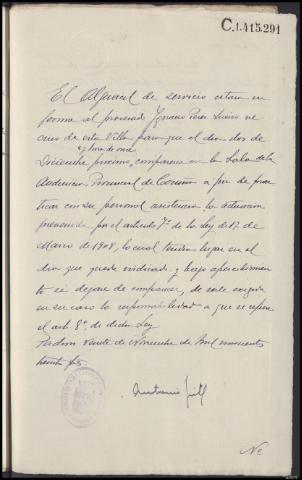 C.1.415.291
El Alguacil de servicio citara en
forma al procesado Ignacio Perez
cino de esta Villa para que el dia dos de
y hora de once
Diciembre proximo, comparezca en la Sala de la
Audiencia Provincial de Coruña a fin de prac
ticar con su personal asistencia la actuacion
prevenida por el articulo 7º de la Ley de 17 de
Marzo de 1908, lo cual tendra lugar en el
dia que queda indicado, y bajo apercibimien
to si dejare de comparecer, de serle exigida
en su caso la responsabilidad a que se refiere
el art 8º de dicha Ley
Padron veinte de Noviembre de mil novecientos
Antonio
Nº